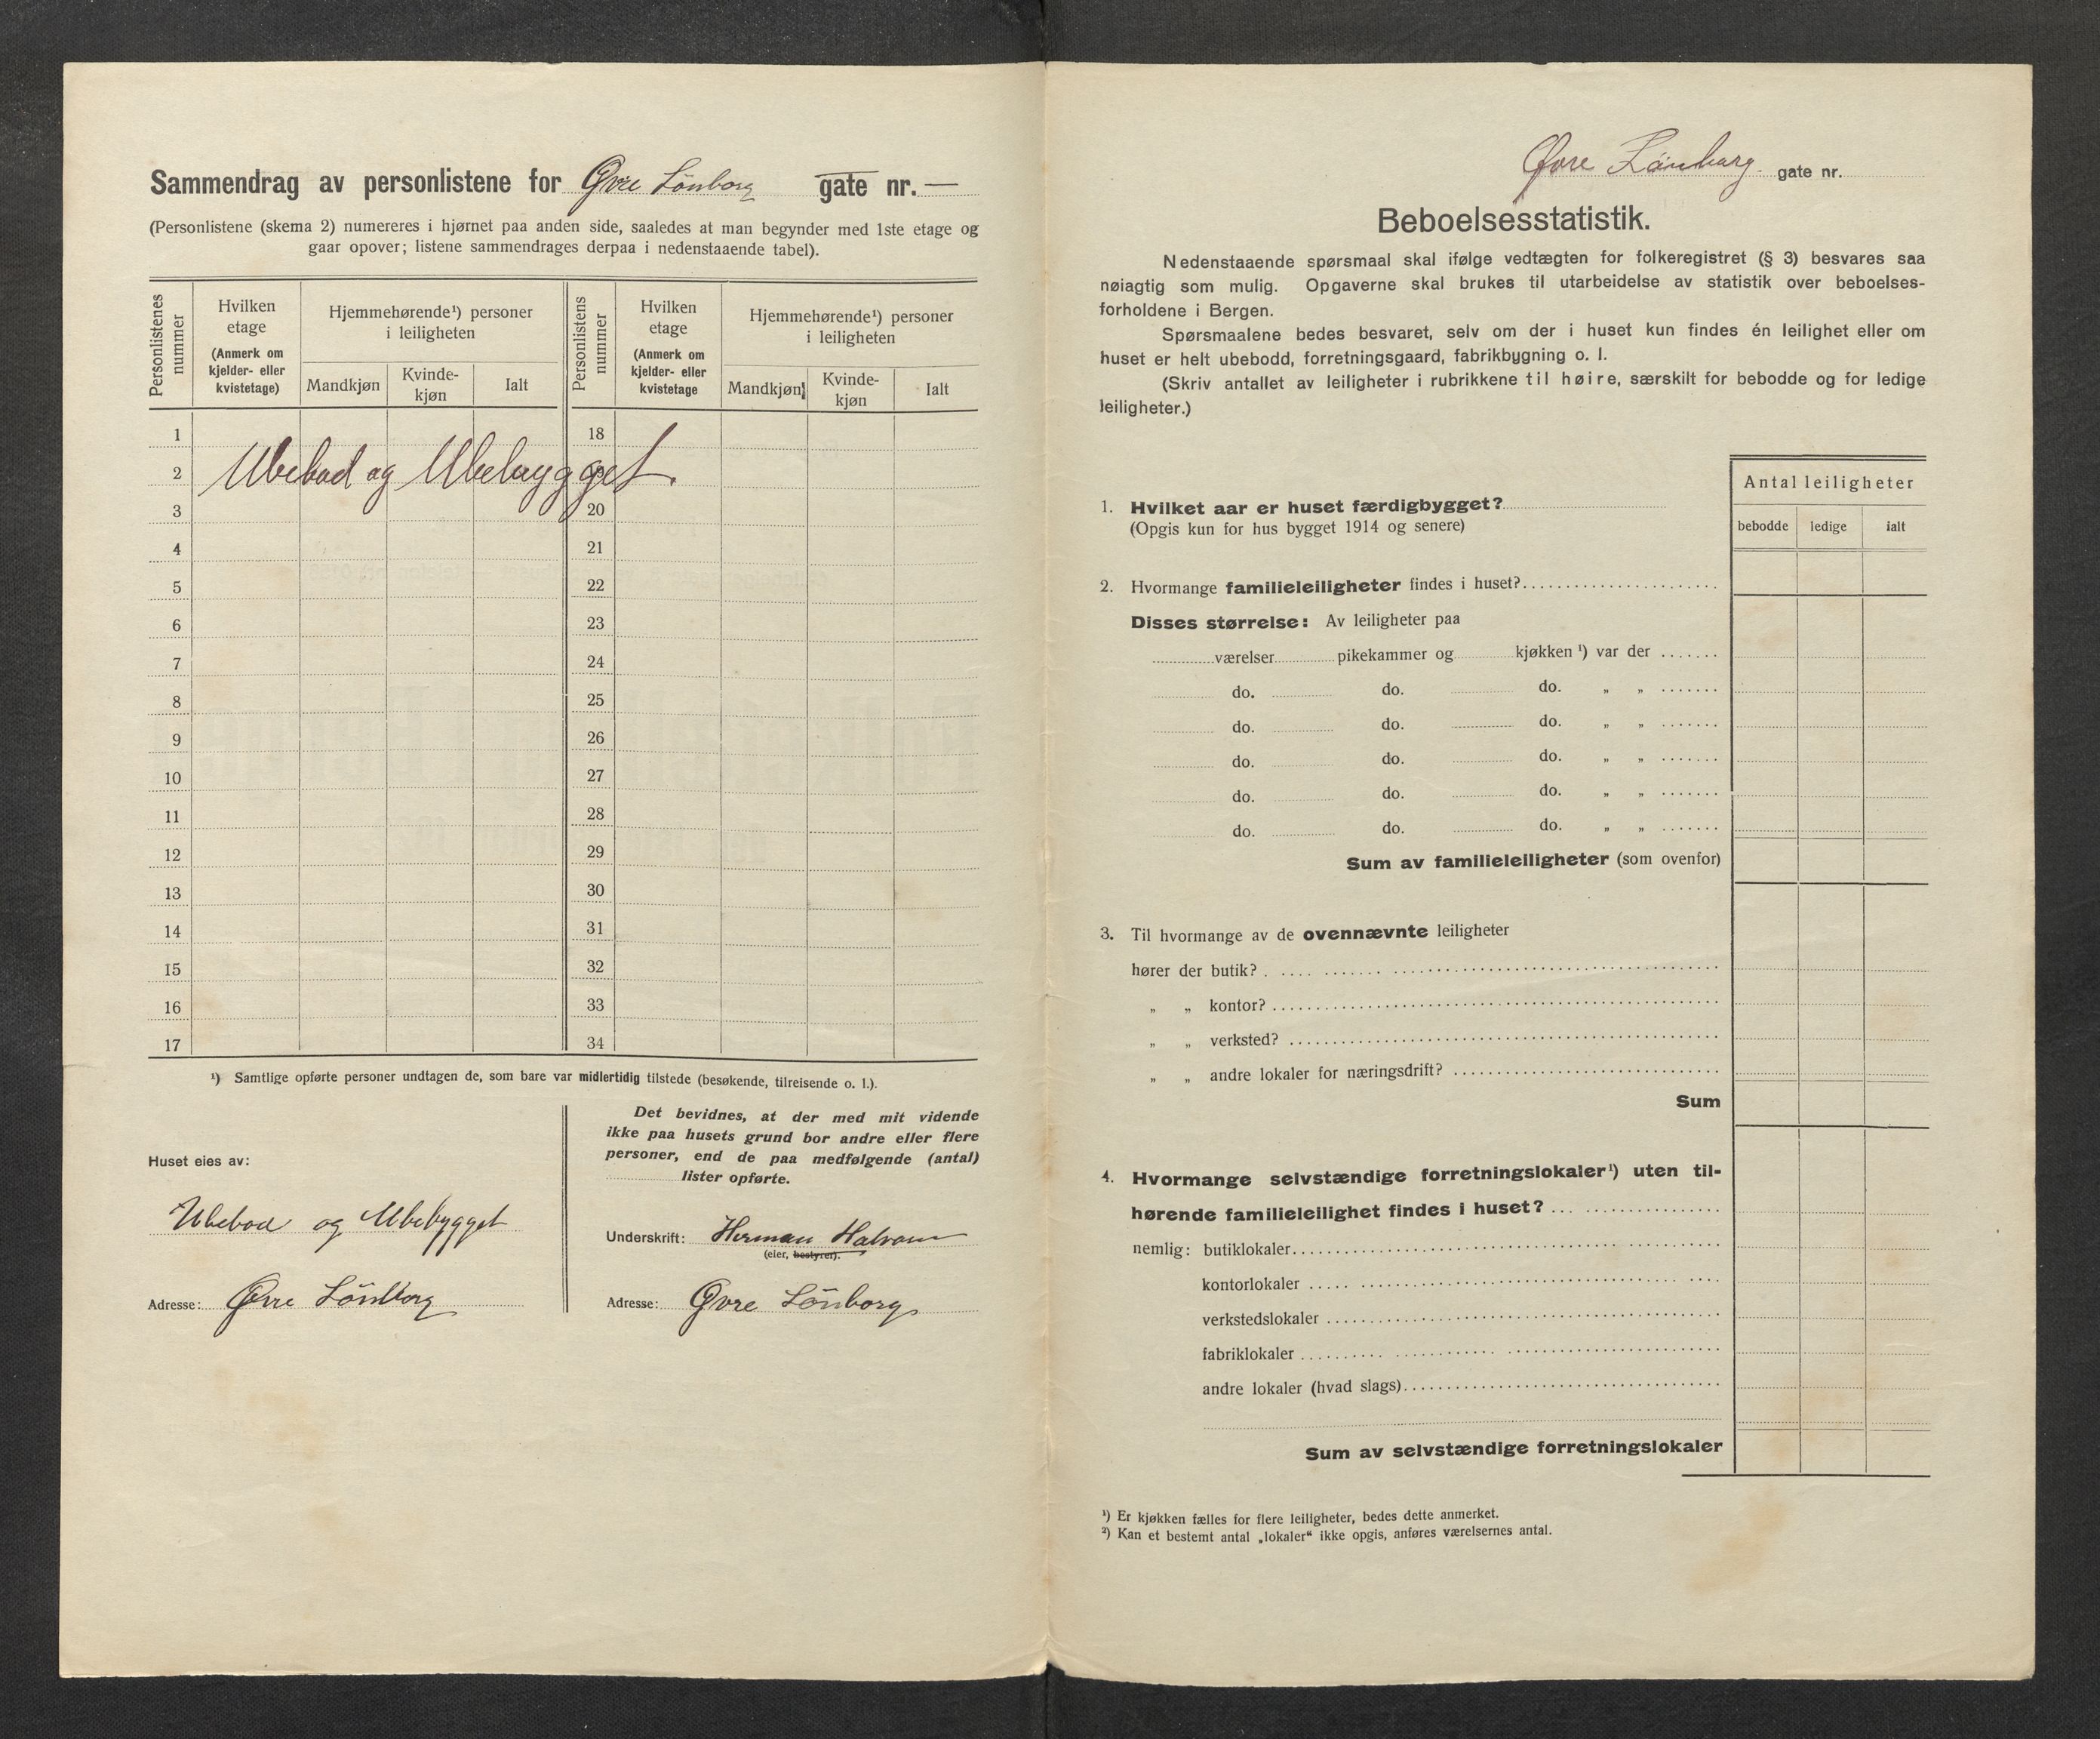 Sammendrag av personlistene for Øvre Lönborg gate nr. —
(Personlistene (skema 2) numereres i hjørnet paa anden side, saaledes at man begynder med 1ste etage og
gaar opover; listene sammendrages derpaa i nedenstaaende tabel).
Personlistenes nummer
Hvilken etage (Anmerk om kjelder- eller kvistetage)
Hjemmehørende¹) personer i leiligheten
Mandkjøn
Kvinde-kjøn
Ialt
Personlistens nummer
Hvilken etage (Anmerk om kjelder- eller kvistetage
Hjemmehørende¹) personer i leiligheten
Mandkjøn
Kvinde-kjøn
Ialt
1 18
2 Ubebod og Ubebygget.
3 20
4 21
5 22
6 23
7 24
8 25
9 26
10 27
11 28
12 29
13 30
14 31
15 32
16 33
17 34
¹) Samtlige opførte personer undtagen de, som bare var midlertidig tilstede (besøkende, tilreisende o. l.).
Huset eies av:
Ubebod og Ubebygget
Adresse: Øvre Lönborg
Det bevidnes, at der med mit vidende
ikke paa husets grund bor andre eller flere
personer, end de paa medfølgende (antal)
lister opførte.
Underskrift: Herman
(eier, bestyrer).
Adresse: Øvre Lönborg
Øvre Lönborg gate nr.
Beboelsesstatistik.
Nedenstaaende spørsmaal skal ifølge vedtægten for folkeregistret (§ 3) besvares saa
nøiagtig som mulig. Opgaverne skal brukes til utarbeidelse av statistik over beboelses-
forholdene i Bergen.
Spørsmaalene bedes besvaret, selv om der i huset kun findes én leilighet eller om
huset er helt ubebodd, forretningsgaard, fabrikbygning o. l.
(Skriv antallet av leiligheter i rubrikkene til høire, særskilt for bebodde og for ledige
leiligheter.)
Antal leiligheter
bebodde ledige ialt
1. Hvilket aar er huset færdigbygget?
(Opgis kun for hus bygget 1914 og senere)
2. Hvormange familieleiligheter findes i huset?
Disses størrelse: Av leiligheter paa
værelser pikekammer og kjøkken ¹) var der
do. do. do. „ „
do. do. do. „ „
do. do. do. „ „
do. do. do. „ „
do. do. do. „ „
Sum av familieleiligheter (som ovenfor)
3. Til hvormange av de ovennævnte leiligheter
hører der butik?
„ „ kontor?
„ „ verksted?
„ „ andre lokaler for næringsdrift?
Sum
4. Hvormange selvstændige forretningslokaler¹) uten til-
hørende familieleilighet findes i huset?
nemlig: butiklokaler
kontorlokaler
verkstedslokaler
fabriklokaler
andre lokaler (hvad slags)
Sum av selvstændige forretningslokaler
¹) Er kjøkken fælles for flere leiligheter, bedes dette anmerket.
²) Kan et bestemt antal „lokaler“ ikke opgis, anføres værelsernes antal.